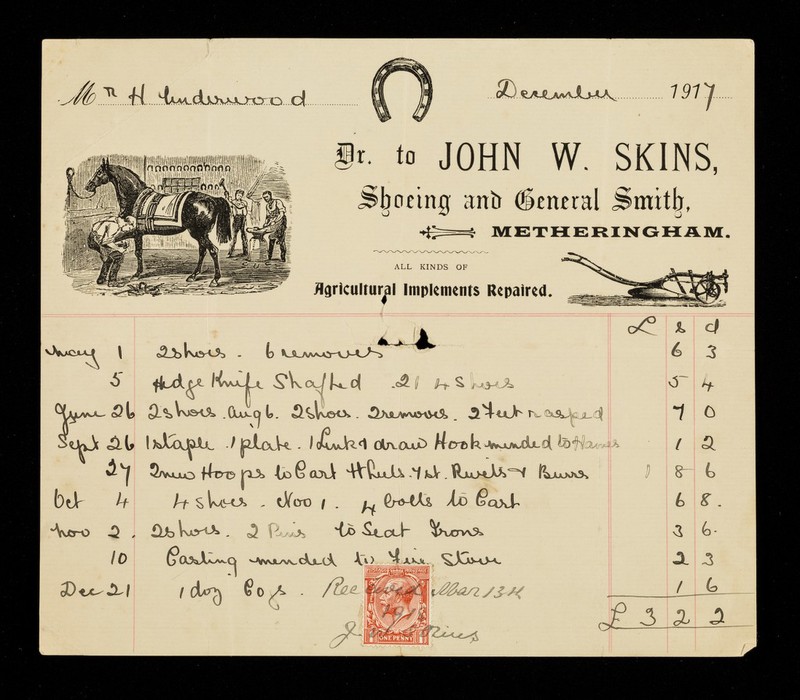 Mr H Underwood December 1917
Dr. to JOHN W. SKINS,
Shoeing and General Smith,
METHERINGHAM.
ALL KINDS OF
Agricultural Implements Repaired.
£ s d
May 1 2 shoes. 6 removes 6 3
5 Hedge Knife Shafted 21 4 Shoes 5 4
June 26 2 shoes. Aug 6. 2 shoes. 2 removes. 2 Feet rasped 7 0
Sept 26 1 staple. 1 plate. 1 Link & draw Hook mended to Hames 1 2
27 2 new Hoops to Cart Wheels. 7 st. Rivets & Burrs 1 8 6
Oct 4 4 shoes. Nov 1. 4 bolts to Cart 6 8.
Nov 2. 2 shoes. 2 Pins to Seat Irons 3 6.
10 Casting mended to Fire Stove 2 3
Dec 21 1 doz Cogs. Received Mar 13th 1 6
191
£ 3 2 2
J W Skins
ONE PENNY